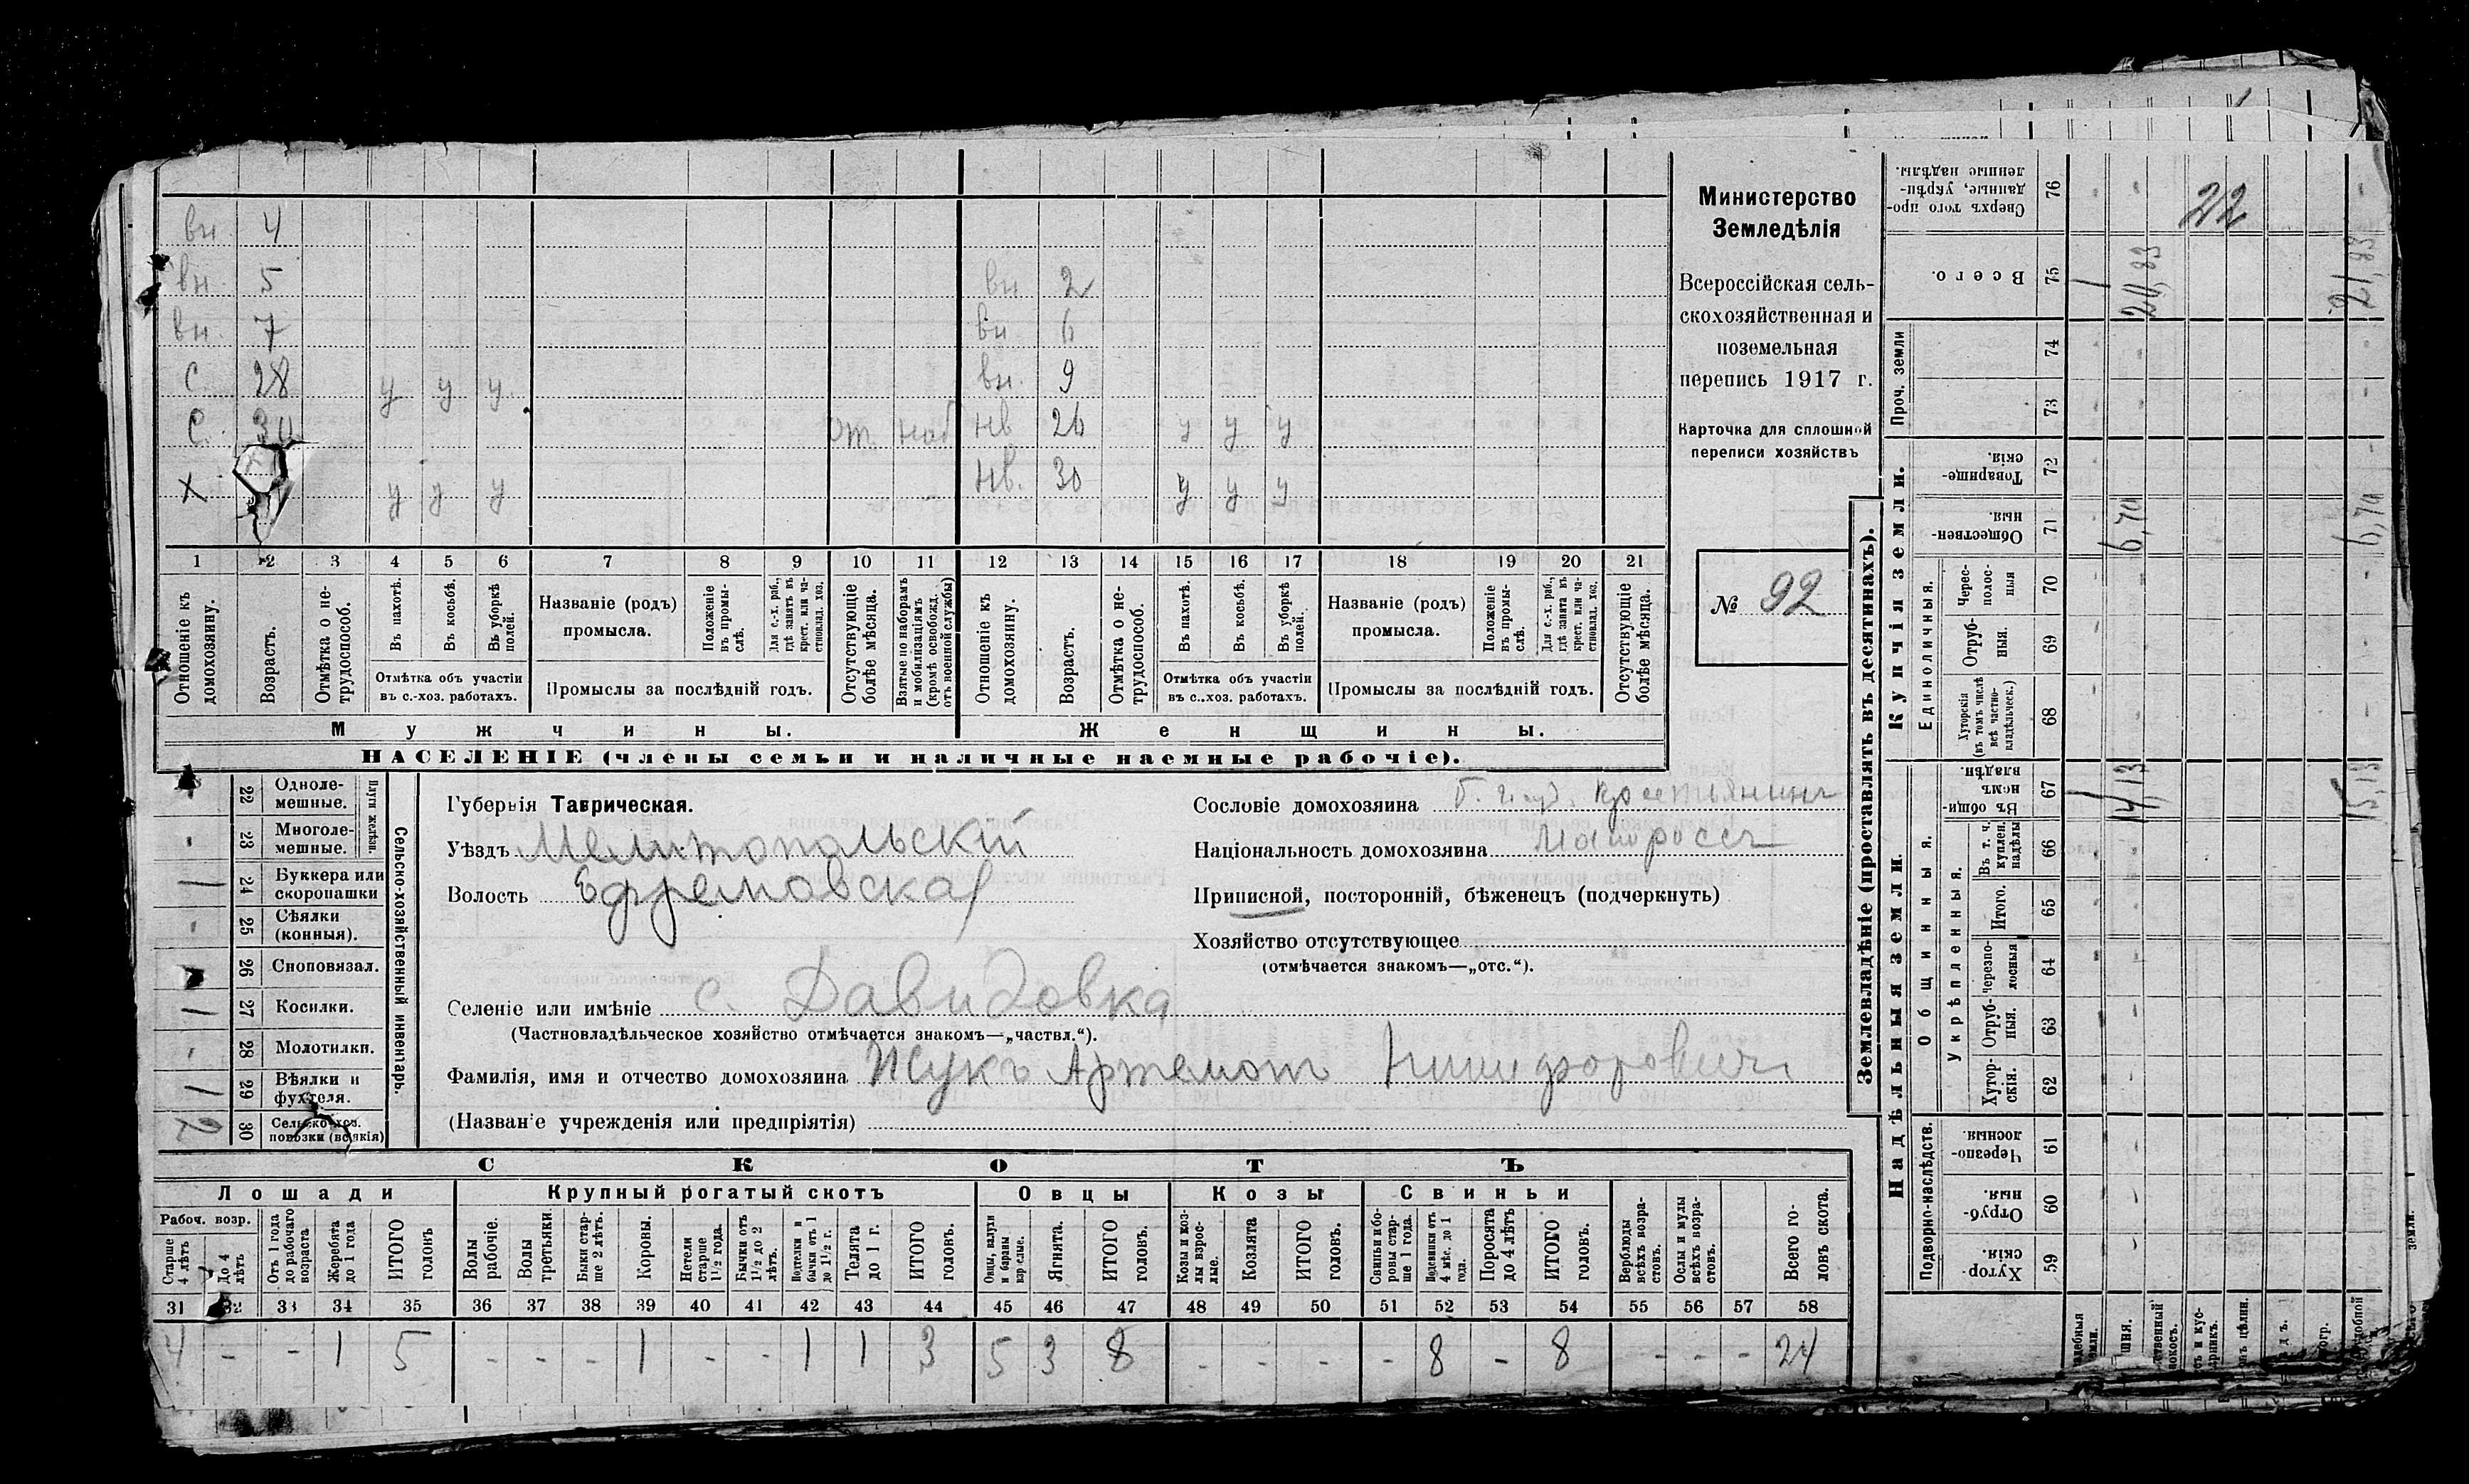 вн. 4
вн. 5 вн 2
вн. 7 вн 6
С. 28 у у у вн. 9
С. 30 от. наб нв 26 у у у
х у у у нв. 30 у у у
1 2 3 4 5 6 7 8 9 10 11 12 13 14 15 16 17 18 19 20 21
Отношеніе къ домохозяину.
Возрастъ.
Отмѣтка о нетрудоспособ.
Въ пахотѣ.
Въ косьбѣ.
Въ уборкѣ полей.
Отмѣтка объ участіи
въ с.-хоз. работахъ.
Названіе (родъ)
промысла.
Положеніе въ промыслѣ.
Для с.-х. раб., гдѣ занятъ въ крест. или частновлад. хоз.
Промыслы за послѣдній годъ.
Отсутствующіе болѣе мѣсяца.
Взятые по наборамъ и мобилизаціямъ (кромѣ освобожд. отъ военной службы)
Отношеніе къ домохозяину.
Возрастъ.
Отмѣтка о нетрудоспособ.
Въ пахотѣ.
Въ косьбѣ.
Въ уборкѣ полей.
Отмѣтка объ участіи
въ с..хоз. работахъ.
Названіе (родъ)
промысла.
Положеніе въ промыслѣ.
Для с.-х. раб., гдѣ занята въ крест. или частновлад. хоз.
Промыслы за послѣдній годъ.
Отсутствующіе болѣе мѣсяца.
Мужчины. Женщины.
НАСЕЛЕНІЕ (члены семьи и наличные наемные рабочіе).
Министерство
Земледѣлія
Всероссійская сель-
скохозяйственная и
поземельная
перепись 1917 г.
Карточка для сплошной
переписи хозяйствъ
№ 92
- 22 Одноле-
мешные.
- 23 Многоле-
мешные.
Плуги желѣзн.
1 24 Буккера или
скоропашки
- 25 Сѣялки
(конныя).
26 Сноповязал.
1 27 Косилки.
- 28 Молотилки.
1 29 Вѣялки и
фухтеля.
2 30 Сельско-хоз.
повозки (всякія)
Сельско-хозяйственный инвентарь.
Губернія Таврическая.
Уѣздъ Мелитопольскій
Волость Ефремовская
Селеніе или имѣніе с. Давидовка
(Частновладѣльческое хозяйство отмѣчается знакомъ—„частвл.“).
Фамилія, имя и отчество домохозяина Жукъ Артемонъ Никифоровичъ
(Назван'е учрежденія или предпріятія)
Сословіе домохозяина крестьянинъ
Національность домохозяина Малороссъ
Приписной, посторонній, бѣженецъ (подчеркнуть)
Хозяйство отсутствующее
(отмѣчается знакомъ—„отс.“).
СКОТЪ
Лошади Крупный рогатый скотъ Овцы Козы Свиньи
Рабоч. возр.
Старше 4 лѣтъ
До 4 лѣтъ
Отъ 1 года до рабочаго возраста
Жеребята до 1 года
ИТОГО головъ
Волы рабочіе.
Волы третьяки.
Быки старше 2 лѣтъ.
Коровы.
Нетели старше 1½ года.
Бычки отъ 1½ до 2 лѣтъ.
Подтелки и бычки отъ 1 до 1½ г.
Телята до 1 г.
ИТОГО головъ.
Овцы, валухи и бараны взрослые.
Ягнята.
ИТОГО головъ.
Козы и козлы взрослые.
Козлята
ИТОГО головъ.
Свиньи боровы старше 1 года.
Подсвинки отъ 4 мѣс. до 1 года.
Поросята до 4 лѣтъ
ИТОГО головъ.
Верблюды всѣхъ возрастовъ.
Ослы и мулы всѣхъ возрастовъ.
Всего головъ скота.
31 32 33 34 35 36 37 38 39 40 41 42 43 44 45 46 47 48 49 50 51 52 53 54 55 56 57 58
4 - - 1 5 - - - 1 - - 1 1 3 5 3 8 - - - - 8 - 8 - - - 24
Землевладѣніе (проставлять въ десятинахъ).
Сверхъ того проданные, укрѣпленные надѣлы. 76 22
Всего. 75 1 20,83 21,83
Проч. земли 74
73
Купчія земли.
Товарищескія. 72
Общественныя. 71 6,70 6,70
Единоличныя.
Чересполосныя 70
Отрубныя. 69
Хуторскія (въ томъ числѣ всѣ частновладѣльческ.) 68
Надѣльныя земли.
Общинныя.
Въ общинномъ владѣн. 67 1 14,13 15,13
Въ т. ч. куплен. надѣлы 66
Укрѣпленныя.
Итого. 65
Черезполосныя 64
Отрубныя. 63
Хуторскія. 62
Подворно-наслѣдств.
Черезполосныя. 61
Отрубныя. 60
Хуторскія. 59
земли.